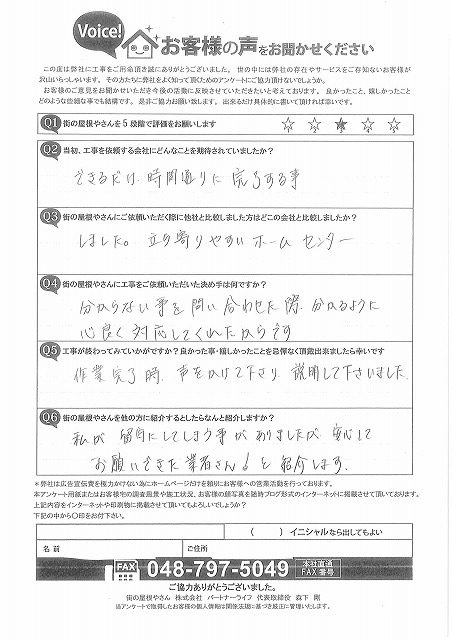 Voice!
お客様の声をお聞かせください
この度は弊社に工事をご用命頂き誠にありがとうございました。世の中には弊社の存在やサービスをご存知ないお客様が
沢山いらっしゃいます。その方たちに弊社をよく知って頂くためのアンケートにご協力頂けないでしょうか。
お客様のご意見をお聞かせいただき今後の活動に反映させていただきたいと考えております。良かったこと、嬉しかったこと
どのような些細な事でも結構です。是非ご協力お願い致します。出来るだけ具体的に書いて頂ければ幸いです。
Q1 街の屋根やさんを5段階で評価をお願いします ☆ ☆ ★ ☆ ☆
Q2 当初、工事を依頼する会社にどんなことを期待されていましたか?
できるだけ、時間通りに完了する事
Q3 街の屋根やさんにご依頼いただく際に他社と比較しました方はどこの会社と比較しましたか?
しました。立ち寄りやすいホームセンター
Q4 街の屋根やさんに工事をご依頼いただいた決め手は何ですか?
分からない事を問い合わせた際、分かるように
心良く対応してくれたからです
Q5 工事が終わってみていかがですか?良かった事・嬉しかったことを忌憚なく頂戴出来ましたら幸いです
作業完了時、声をかけて下さり、説明して下さいました。
Q6 街の屋根やさんを他の方に紹介するとしたらなんと紹介しますか?
私が留守にしてしまう事がありましたが、安心して
お願いできた業者さん!と紹介します。
*弊社は広告宣伝費を極力かけない為にホームページだけを頼りにお客様への営業活動を行っております。
本アンケート用紙またはお客様宅の調査風景や施工状況、お客様の顔写真を随時ブログ形式のインターネットに掲載させて頂いております。
上記内容をインターネットや印刷物に掲載させて頂いてもよろしいでしょうか?
下記の中から〇印をお付下さい。
( ) イニシャルなら出してもよい
名前 ご住所
FAX 048-797-5049 本社直通 FAX番号
ご協力ありがとうございました。
街の屋根やさん 株式会社 パートナーライフ 代表取締役 森下 剛
当アンケートで取得したお客様の個人情報は関係法規に基づき厳正に管理いたします。